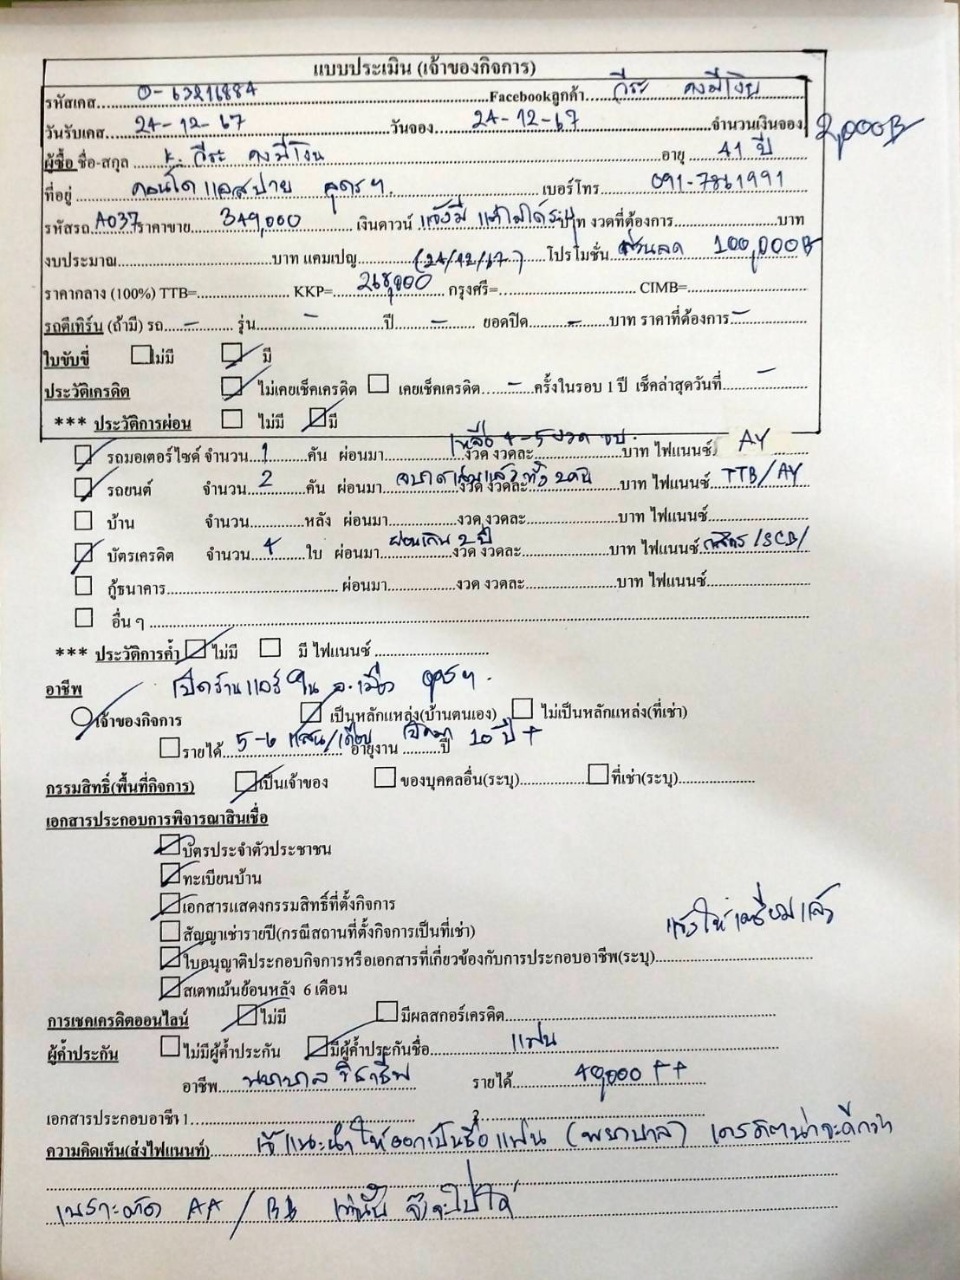 แบบประเมิน (เจ้าของกิจการ)
รหัสเคส 0-63216884 Facebookลูกค้า วีระ คงมีเงิน
วันรับเคส 24-12-67 วันจอง 24-12-67 จำนวนเงินจอง 2,000B
ผู้ซื้อ ชื่อ-สกุล k. วีระ คงมีเงิน อายุ 41 ปี
ที่อยู่ คอนโด แอสปาย อุดรฯ. เบอร์โทร 091-7861991
รหัสรถ A037 ราคาขาย 349,000 เงินดาวน์ แจ้งมี แต่ไม่ได้ระบุ บาท งวดที่ต้องการ บาท
งบประมาณ บาท แคมเปญ (24/12/67) โปรโมชั่น ส่วนลด 100,000B
ราคากลาง (100%) TTB= KKP= 268,000 กรุงศรี= CIMB=
รถตีเทิร์น (ถ้ามี) รถ - รุ่น - ปี - ยอดปิด - บาท ราคาที่ต้องการ -
ใบขับขี่ ไม่มี มี
ประวัติเครดิต ไม่เคยเช็คเครดิต เคยเช็คเครดิต - ครั้งในรอบ 1 ปี เช็คล่าสุดวันที่ -
*** ประวัติการผ่อน ไม่มี มี
รถมอเตอร์ไซค์ จำนวน 1 คัน ผ่อนมา เหลือ 4-5 งวด งวด งวดละ บาท ไฟแนนซ์ AY
รถยนต์ จำนวน 2 คัน ผ่อนมา งวด งวดละ บาท ไฟแนนซ์ TTB/AY
บ้าน จำนวน หลัง ผ่อนมา งวด งวดละ บาท ไฟแนนซ์
บัตรเครดิต จำนวน 4 ใบ ผ่อนมา ผ่อนเกิน 2 ปี งวด งวดละ บาท ไฟแนนซ์ กสิกร/SCB/
กู้ธนาคาร ผ่อนมา งวด งวดละ บาท ไฟแนนซ์
อื่น ๆ
*** ประวัติการค้ำ ไม่มี มี ไฟแนนซ์
อาชีพ เปิดร้านแอร์ ใน อ.เมือง อุดรฯ.
เจ้าของกิจการ เป็นหลักแหล่ง(บ้านตนเอง) ไม่เป็นหลักแหล่ง(ที่เช่า)
รายได้ 5-6 แสน/เดือน อายุงาน เปิดมา ปี 10 ปี+
กรรมสิทธิ์(พื้นที่กิจการ) เป็นเจ้าของ ของบุคคลอื่น(ระบุ) ที่เช่า(ระบุ)
เอกสารประกอบการพิจารณาสินเชื่อ
บัตรประจำตัวประชาชน
ทะเบียนบ้าน
เอกสารแสดงกรรมสิทธิ์ที่ตั้งกิจการ
สัญญาเช่ารายปี(กรณีสถานที่ตั้งกิจการเป็นที่เช่า) แจ้งให้เตรียมแล้ว
ใบอนุญาติประกอบกิจการหรือเอกสารที่เกี่ยวข้องกับการประกอบอาชีพ(ระบุ)
สเตทเม้นย้อนหลัง 6 เดือน
การเชคเครดิตออนไลน์ ไม่มี มีผลสกอร์เครดิต
ผู้ค้ำประกัน ไม่มีผู้ค้ำประกัน มีผู้ค้ำประกันชื่อ แฟน
อาชีพ พยาบาลวิชาชีพ รายได้ 40,000 ++
เอกสารประกอบอาชีพ 1 2
ความคิดเห็น(ส่งไฟแนนท์) เจ๊แนะนำให้ออกเป็นชื่อแฟน (พยาบาล) เครดิตน่าจะดีกว่า
เพราะติด AA / BB เท่านั้น